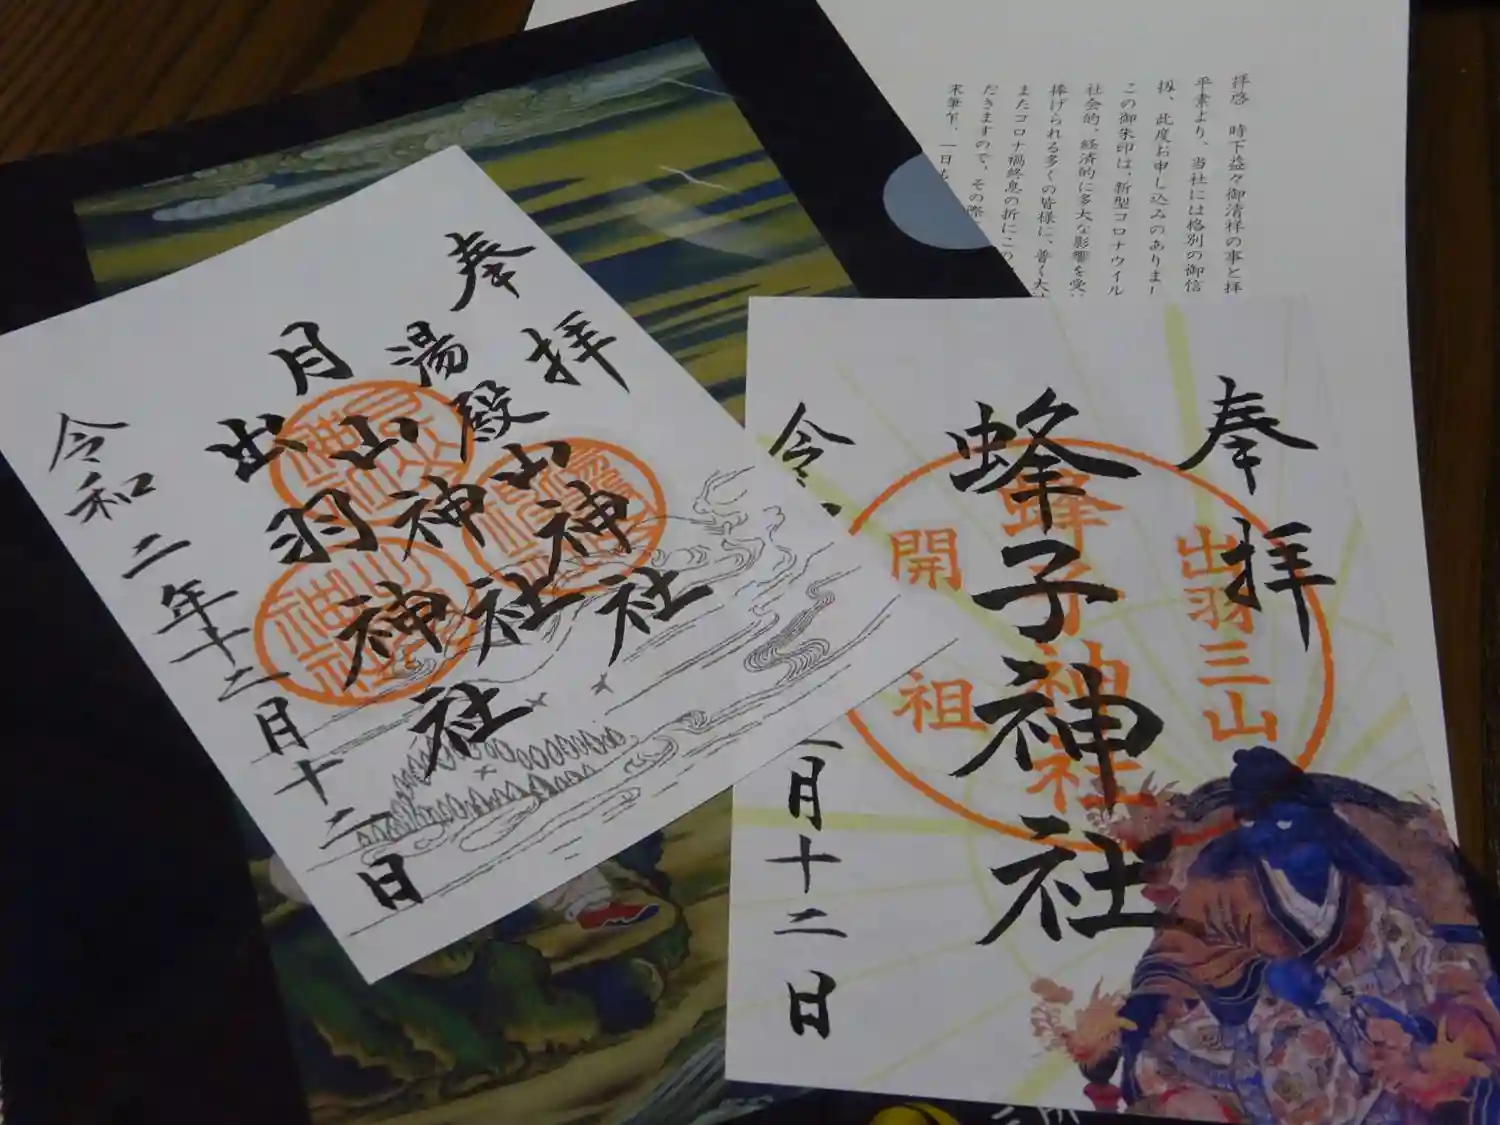 奉拝
湯殿山神社
月山神社
出羽神社
令和二年十二月十二日
奉拝
出羽三山
蜂子神社
蜂子神社
開祖
令
月十二日
拝啓 時下益々御清祥の事と拝
平素より、当社には格別の御信
扨、此度お申し込みのありまし
この御朱印は、新型コロナウイル
社会的、経済的に多大な影響を受
捧げられる多くの皆様に、普く大
またコロナ禍終息の折にこの
だきますので、その際
末筆乍、一日も